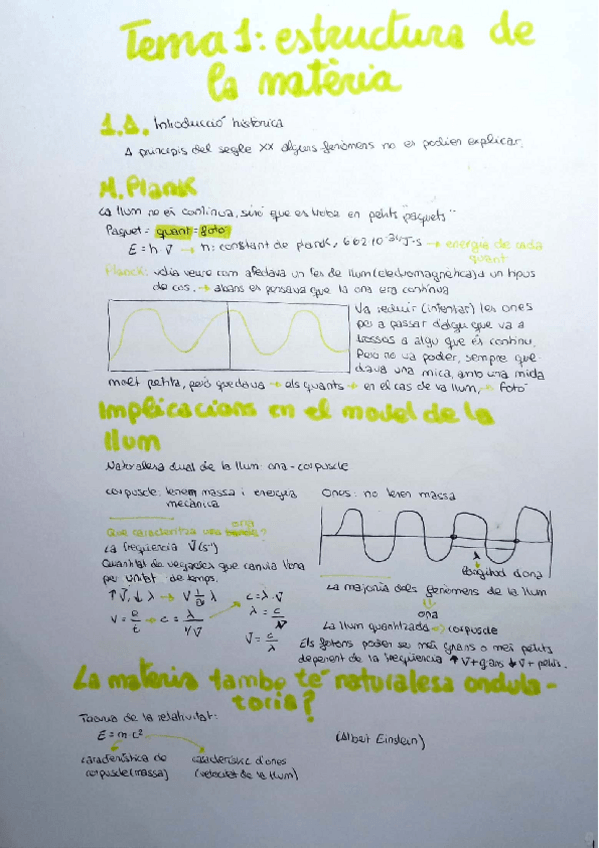 Tema 1: estructura de
la matèria
1.A. Introducció històrica
A principis del segle XX alguns fenòmens no es podien explicar.
M. Plank
La llum no és contínua, sinó que es troba en petits "paquets"
Paquet = quant = fotó
E = h·ν → h: constant de planck, 6'62·10⁻³⁴J·s → energia de cada
quant
Planck: volia veure com afectava un feix de llum (electromagnètica) a un tipus
de cos. → abans es pensava que la ona era contínua
Va reduir (intentar) les ones
per a passar d'algu que va a
trossos a algu que és continu.
Però no va poder, sempre que-
dava una mica, amb una mida
molt petita, però quedava → els quants → en el cas de la llum, → fotó
Implicacions en el model de la
llum
Naturalesa dual de la llum: ona-corpuscle
corpuscle: tenen massa i energia
mecànica
Ones: no tenen massa
Que caracteritza una ona?
La freqüència ν (s⁻¹)
Quantitat de vegades que canvia l'ona
per unitat de temps.
↑ν, ↓λ → ν 1/α λ
c = λ·ν
λ = c/ν
v = e/t → c = λ/1/ν
ν = c/λ
λ
longitud d'ona
La majoria dels fenòmens de la llum
ona
La llum quantitzada => corpuscle
Els fotons poden ser més grans o més petits
depenent de la freqüència ↑ν + grans ↓ν + petits.
La materia també té naturalesa ondula-
toria?
Teoria de la relativitat:
E = m·c²
(Albert Einstein)
característica de
corpuscle (massa)
característic d'ones
(velocitat de la llum)